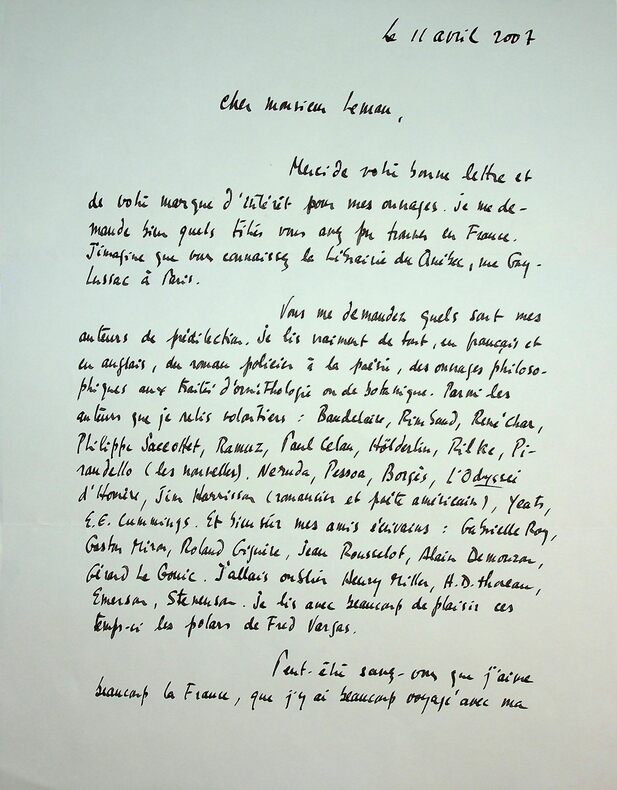 le 11 avril 2007
Cher monsieur Leman,
Merci de votre bonne lettre et
de votre marque d'intérêt pour mes ouvrages. Je me de-
mande bien quels titres vous avez pu trouver en France.
J'imagine que vous connaissez la Librairie du Québec, rue Gay-
Lussac à Paris.
Vous me demandez quels sont mes
auteurs de prédilection. Je lis vraiment de tout, en français et
en anglais, du roman policier à la poésie, des ouvrages philoso-
phiques aux traités d'ornithologie ou de botanique. Parmi les
auteurs que je relis volontiers : Baudelaire, Rimbaud, René Char,
Philippe Jaccottet, Ramuz, Paul Celan, Hölderlin, Rilke, Pi-
randello (les nouvelles). Neruda, Pessoa, Borgès, L'Odyssée
d'Homère, Jim Harrisson (romancier et poète américain), Yeats,
E.E. Cummings. Et bien sûr mes amis écrivains : Gabrielle Roy,
Gaston Miron, Roland Giguère, Jean Rousselot, Alain Demouzon,
Gérard Le Gouic. J'allais oublier Henry Miller, H.D. Thoreau,
Emerson, Stevenson. Je lis avec beaucoup de plaisir ces
temps-ci les polars de Fred Vargas.
Peut-être savez-vous que j'aime
beaucoup la France, que j'y ai beaucoup voyagé avec ma